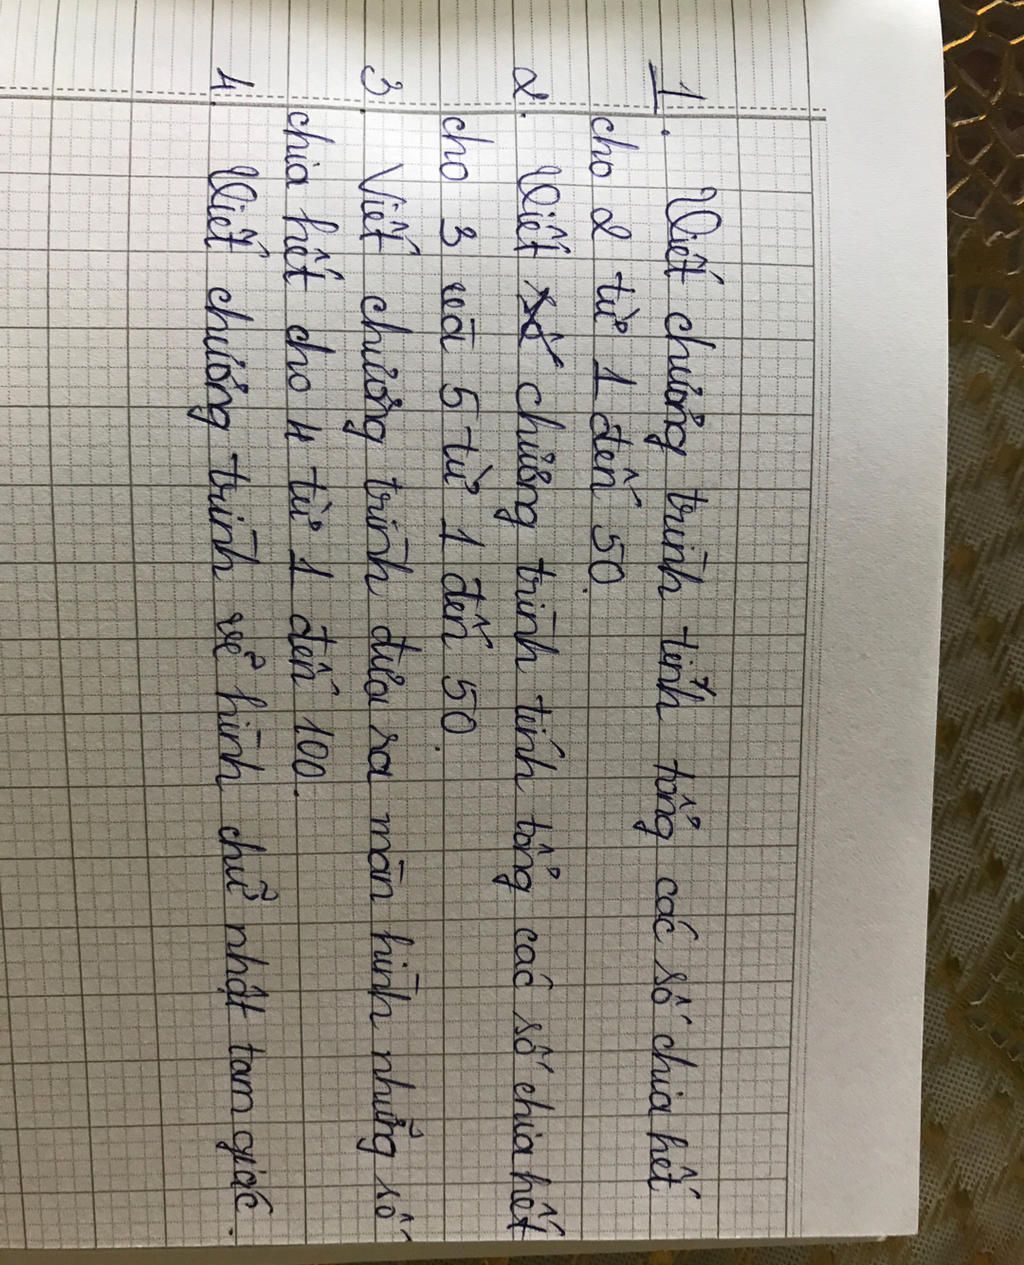 1. Viết chương trình tính tổng các số chia hết
cho 2 từ 1 đến 50.
2. Viết chương trình tính tổng các số chia hết
cho 3 và 5 từ 1 đến 50.
3. Viết chương trình đưa ra màn hình những số
chia hết cho 4 từ 1 đến 100.
4. Viết chương trình vẽ hình chữ nhật tam giác.